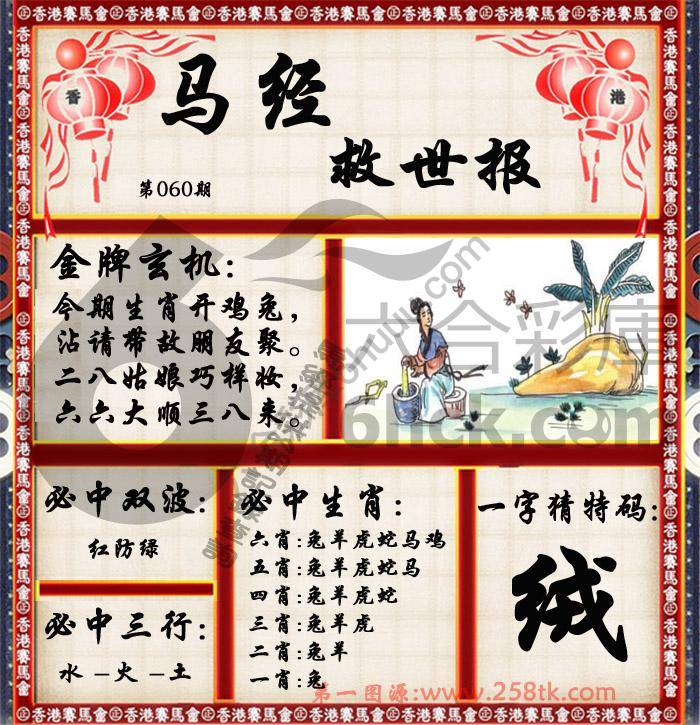 香港賽馬會
香
港
马经
救世报
第060期
金牌玄机：
今期生肖开鸡兔，
沾请带故朋友聚。
二八姑娘巧样妆，
六六大顺三八来。
六合彩庫
6hck.com
必中双波：
红防绿
必中三行：
水－火－土
必中生肖：
六肖:兔羊虎蛇马鸡
五肖:兔羊虎蛇马
四肖:兔羊虎蛇
三肖:兔羊虎
二肖:兔羊
一肖:兔
一字猜特码：
绒
第一图源:www.258tk.com